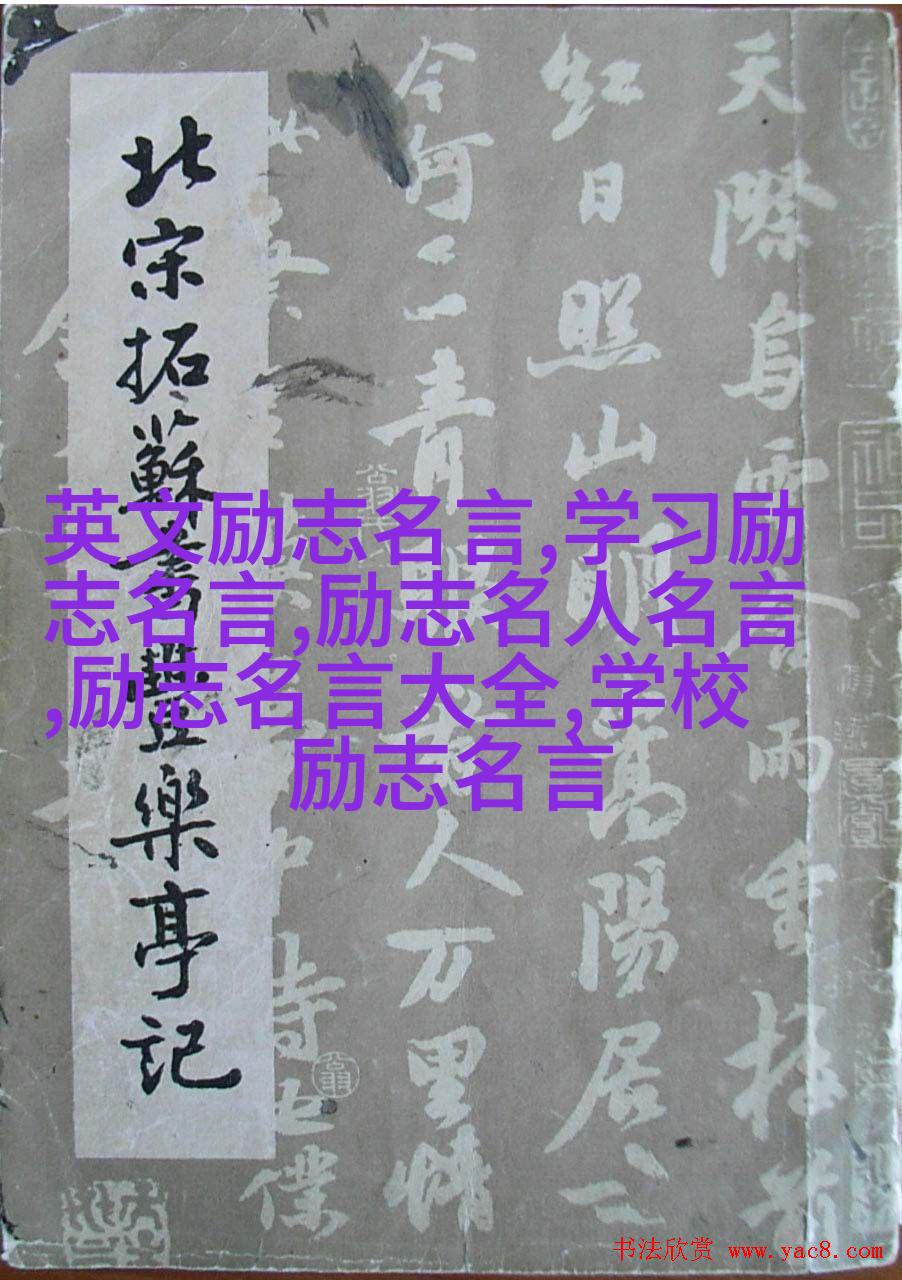 天際烏雲含雨重
红日照山明嵩陽居士
今何在青眼看人万里情
夢中詩也僕
北宋拓蘇書豐樂亭記
英文励志名言,学习励
志名言,励志名人名言
,励志名言大全,学校
励志名言
书法欣赏 www.yac8.com